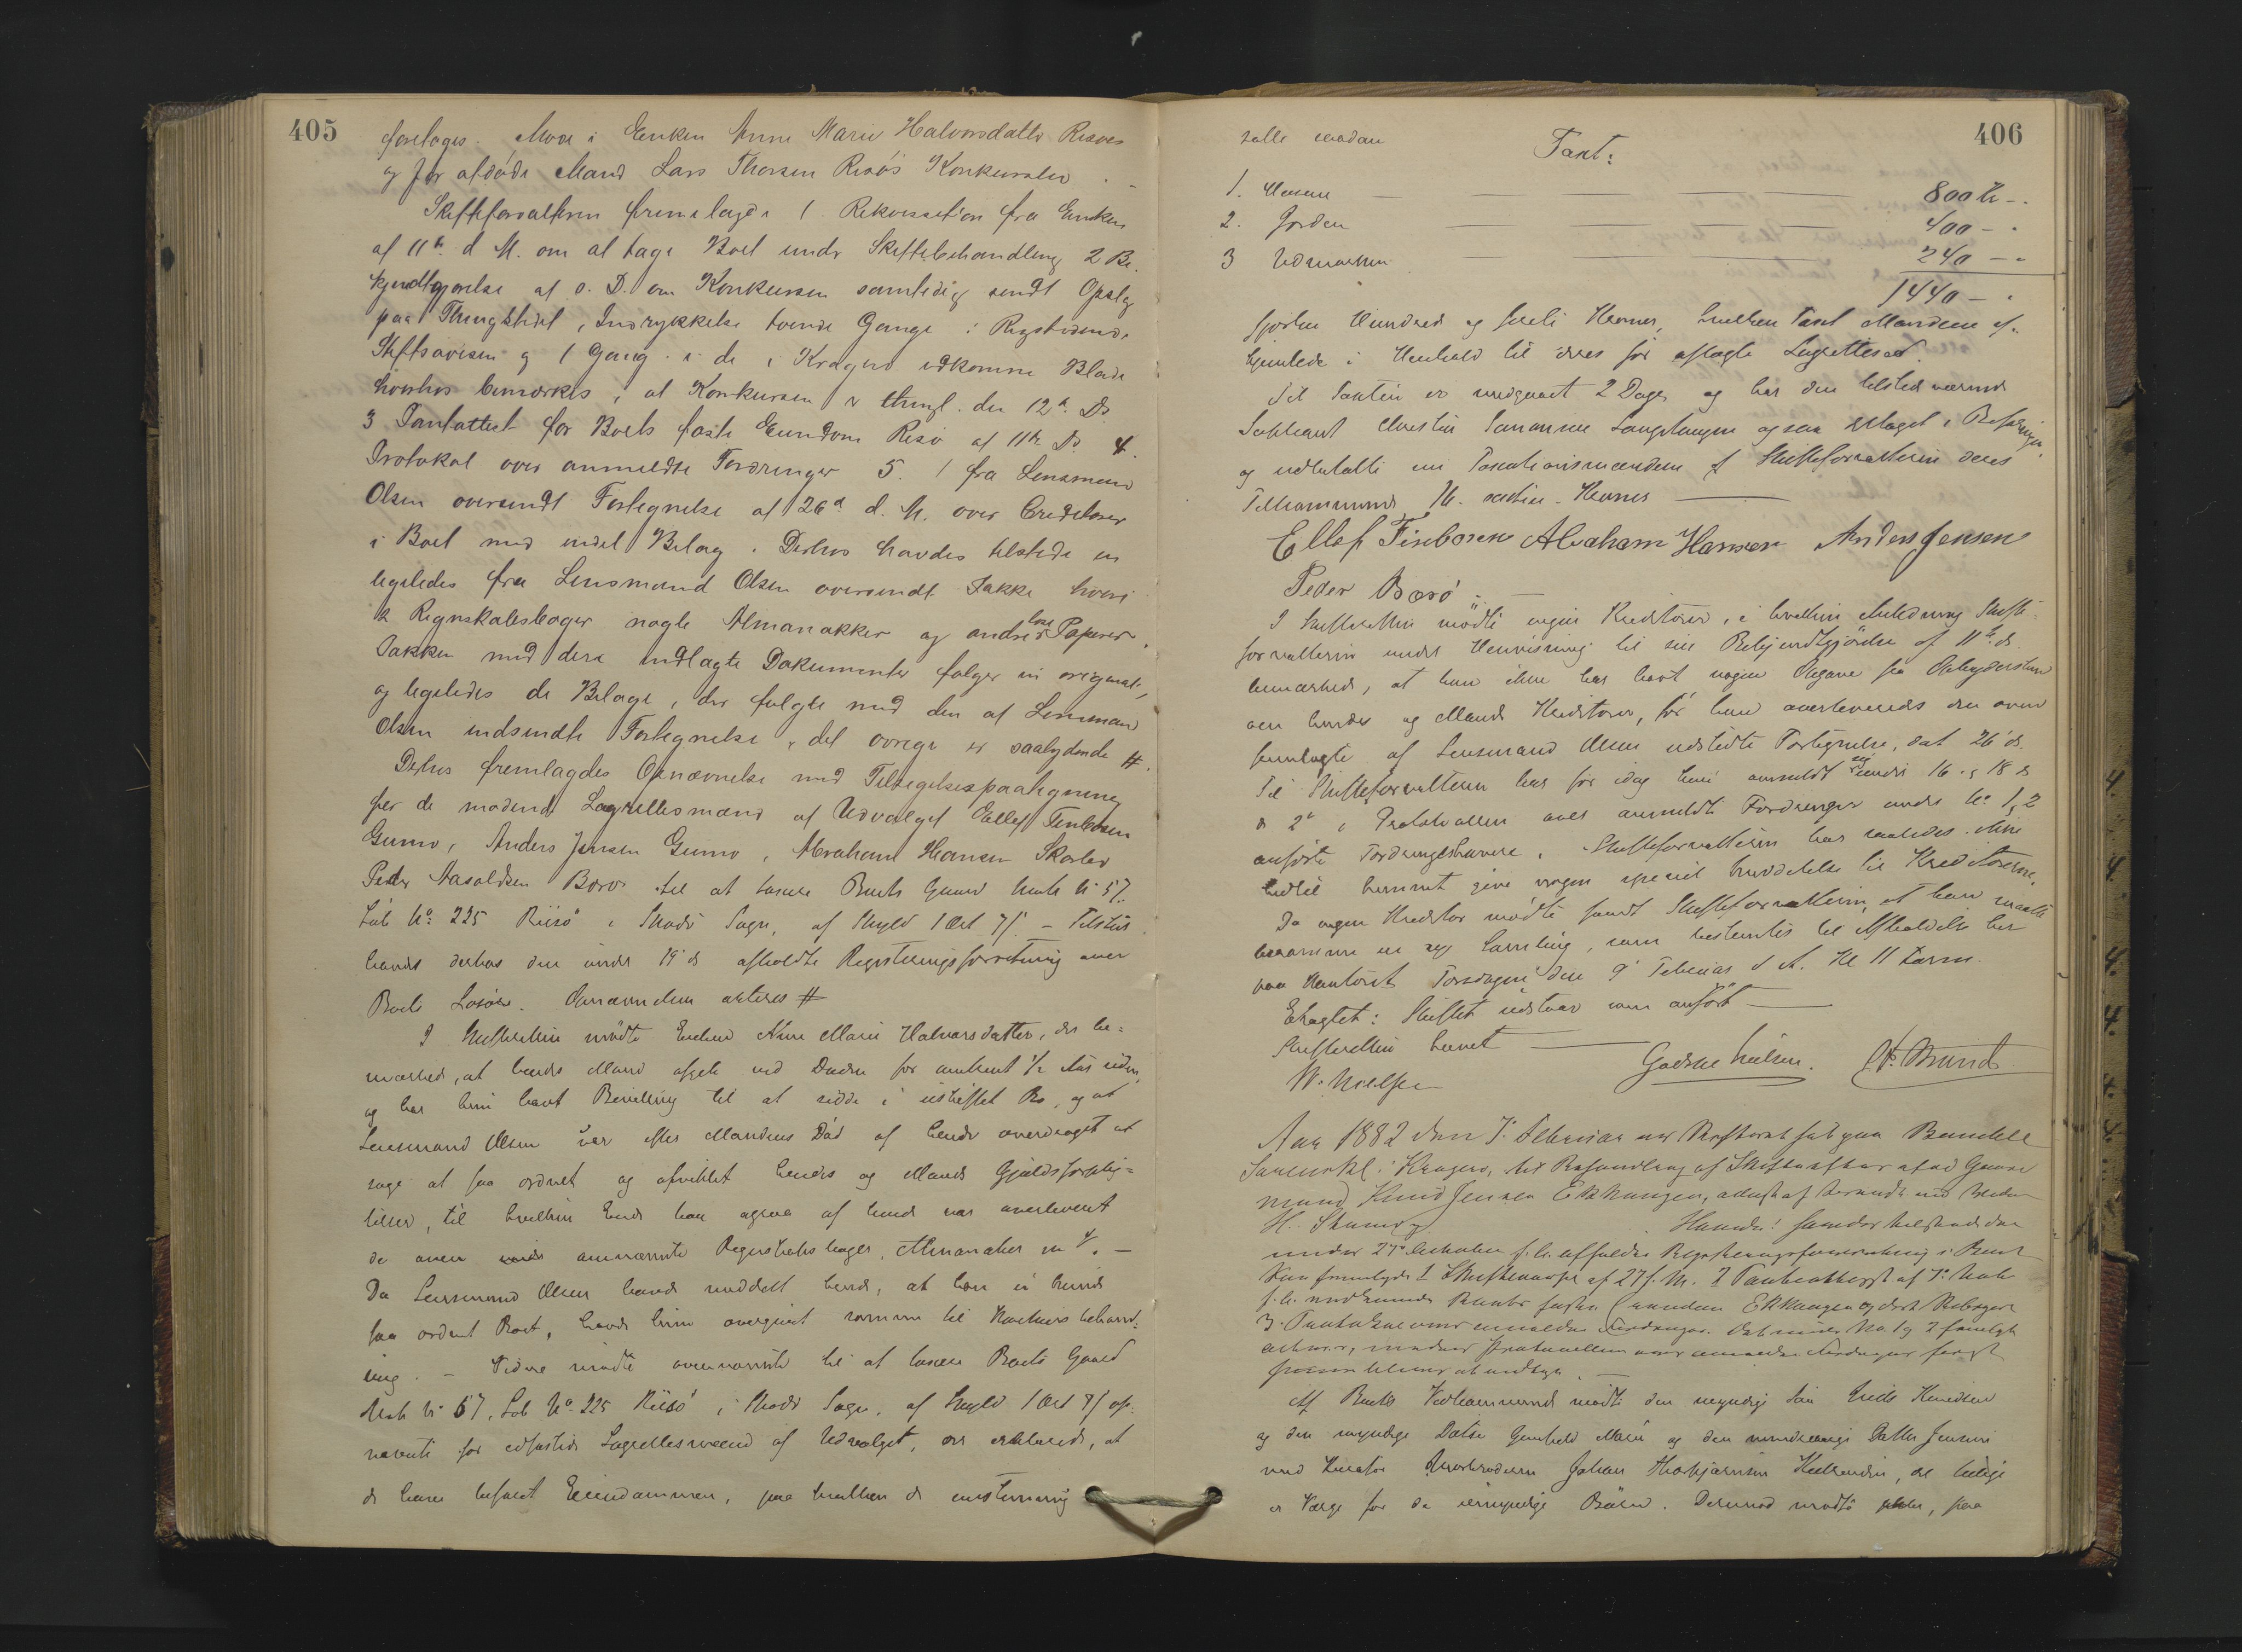 405
foretages. Mode i Enken Anne Marie Halvorsdatter Risøes
og før afdøde Mand Lars Thorsen Risø's Konkursbo. -
Skifteforvalteren fremlagde 1. Rekvisition fra Enken
af 11te d. M. om at tage Boet under Skiftebehandling 2 Be-
kjendtgjørelse af s. D. om Konkursen samtidig sendt Opslag
paa Thingstedet, Indrykkelse tvende Gange i Rigstidende
Stiftsavisen og 1 Gang i de i Kragerø udkomne Blade
hvorhos bemærkes, at Konkursen er thingl. den 12te Ds
3 Pantattest for Boets faste Eiendom Risø af 11te Ds 4.
Protokol over anmeldte Fordringer 5. 1 fra Lensmand
Olsen oversendt Fortegnelse af 26de d. M. over Creditorer
i Boet med endel Bilag. Derhos havdes tilstede en
ligeledes fra Lensmand Olsen oversendt Pakke hvori
2 Regnskabsbøger nogle Almanakker og andre løse Papirer.
Pakken med dens indlagte Dokumenter følger in original,
og ligeledes de Bilage, der fulgte med den af Lensmand
Olsen indsendte Fortegnelse, det øvrige er saalydende #.
Derhos fremlagdes Opnævnelse med Tilsigelsespaategning
for de mødende Lagrettesmænd af Udvalget Ellef Finborsen
Gumø, Anders Jensen Gumø, Abraham Hansen Skarbo
Peder Aasoldsen Borø til at taxere Boets Gaard Matr No 57.
Løb No 225 Riisø i Skaadø Sogn, af Skyld 1 Ort 7 ß. - Tilstede
havdes derhos den under 19de ds afholdte Registreringsforretning over
Boets Løsøre. Opnævnelsen akteres #
I Skifteretten mødte Enken Anne Marie Halvorsdatter, der be-
mærkede, at hendes Mand afgik ved Døden for omtrent 1/2 Aar siden,
og har hun havt Bevilling til at sidde i uskiftet Bo, og at
Lensmand Olsen var efter Mandens Død af hende overdraget at
søge at faa ordnet og afviklet hendes og Mands Gjældsforplig-
telser, til hvilken Ende han ogsaa af hende var overleveret
de oven omnævnte Regnskabsbøger, Almanakker m. v. -
Da Lensmand Olsen havde meddelt hende, at han ei kunde
faa ordnet Boet, havde hun overgivet samme til Konkursbehand-
ling. - Videre mødte ovennævnte til at taxere Boets Gaard
Matr No 57, Løb No 225 Riisø i Skaadø Sogn, af Skyld 1 Ort 7 ß op-
nævnte før edfæstede Lagrettesmænd af Udvalget, der erklærede, at
de havde befaret Eiendommen, paa hvilken de enstemmig
406
satte saadan
Taxt:
1. Husene 800 Kr -.
2. Jorden 400 -.
3 Udmarken 240 -.
1440 -.
fjorten Hundred og firti Kroner, hvilken Taxt Mændene af-
hjemlede i Henhold til deres før aflagte Lagrettesed.
Til Taxten er medgaaet 2 Dage og har den tilstedeværende
Langtangen ogsaa deltaget i Befaringen,
og udbetalte nu Taxationsmændene af Skifteforvalteren deres
Tilkommende 16. sexten Kroner
Ellef Finborsen Abraham Hansen Anders Jensen
Peder Borø
I Skifteretten mødte ingen Kreditorer, i hvilken Anledning Skifte-
forvalteren under Henvisning til sin Bekjendtgjørelse af 11te ds.
bemærkede, at han ikke har havt nogen Opgave fra Debitricen
over hendes og Mands Kreditorer, før hun overleverede den oven
fremlagte af Lensmand Olsen udstedte Fortegnelse, dat 26de ds.
Til Skifteforvalteren har før idag kun anmeldt sig under 16. og 18 ds
de 2de i Protokollen over anmeldte Fordringer under No 1 og 2
anførte Fordringshavere. Skifteforvalteren har saaledes ikke
hidtil kunnet give nogen speciel Meddelelse til Kreditorerne.
Da ingen Kreditor mødte fandt Skifteforvalteren, at han maatte
beramme en ny Samling, som bestemtes til Afholdelse her
paa Kontoret Torsdagen den 9de Februar d. A. Kl. 11 Form.
Eragtet: Skiftet udstaar som anført
Skifteretten hævet
W. Nielsen Godske Nielsen. Brind
Aar 1882 den 7de Februar var Skifteret sat paa Bamble
Sorenskr. i Kragerø, til Behandling af Skiftet efter afød Gaard-
mand Knud Jensen Ekhaugen,
under 27de
Ekhaugen
Af Boets Vedkommende mødte den myndige Søn Niels Knudsen
og den myndige Datter Gunhild Marie og den mindreaarige Datter Jensine
med Kurator Johan Thorbjørnsen, der tillige
er Værge for de umyndige Børn. Derimod mødte, paa